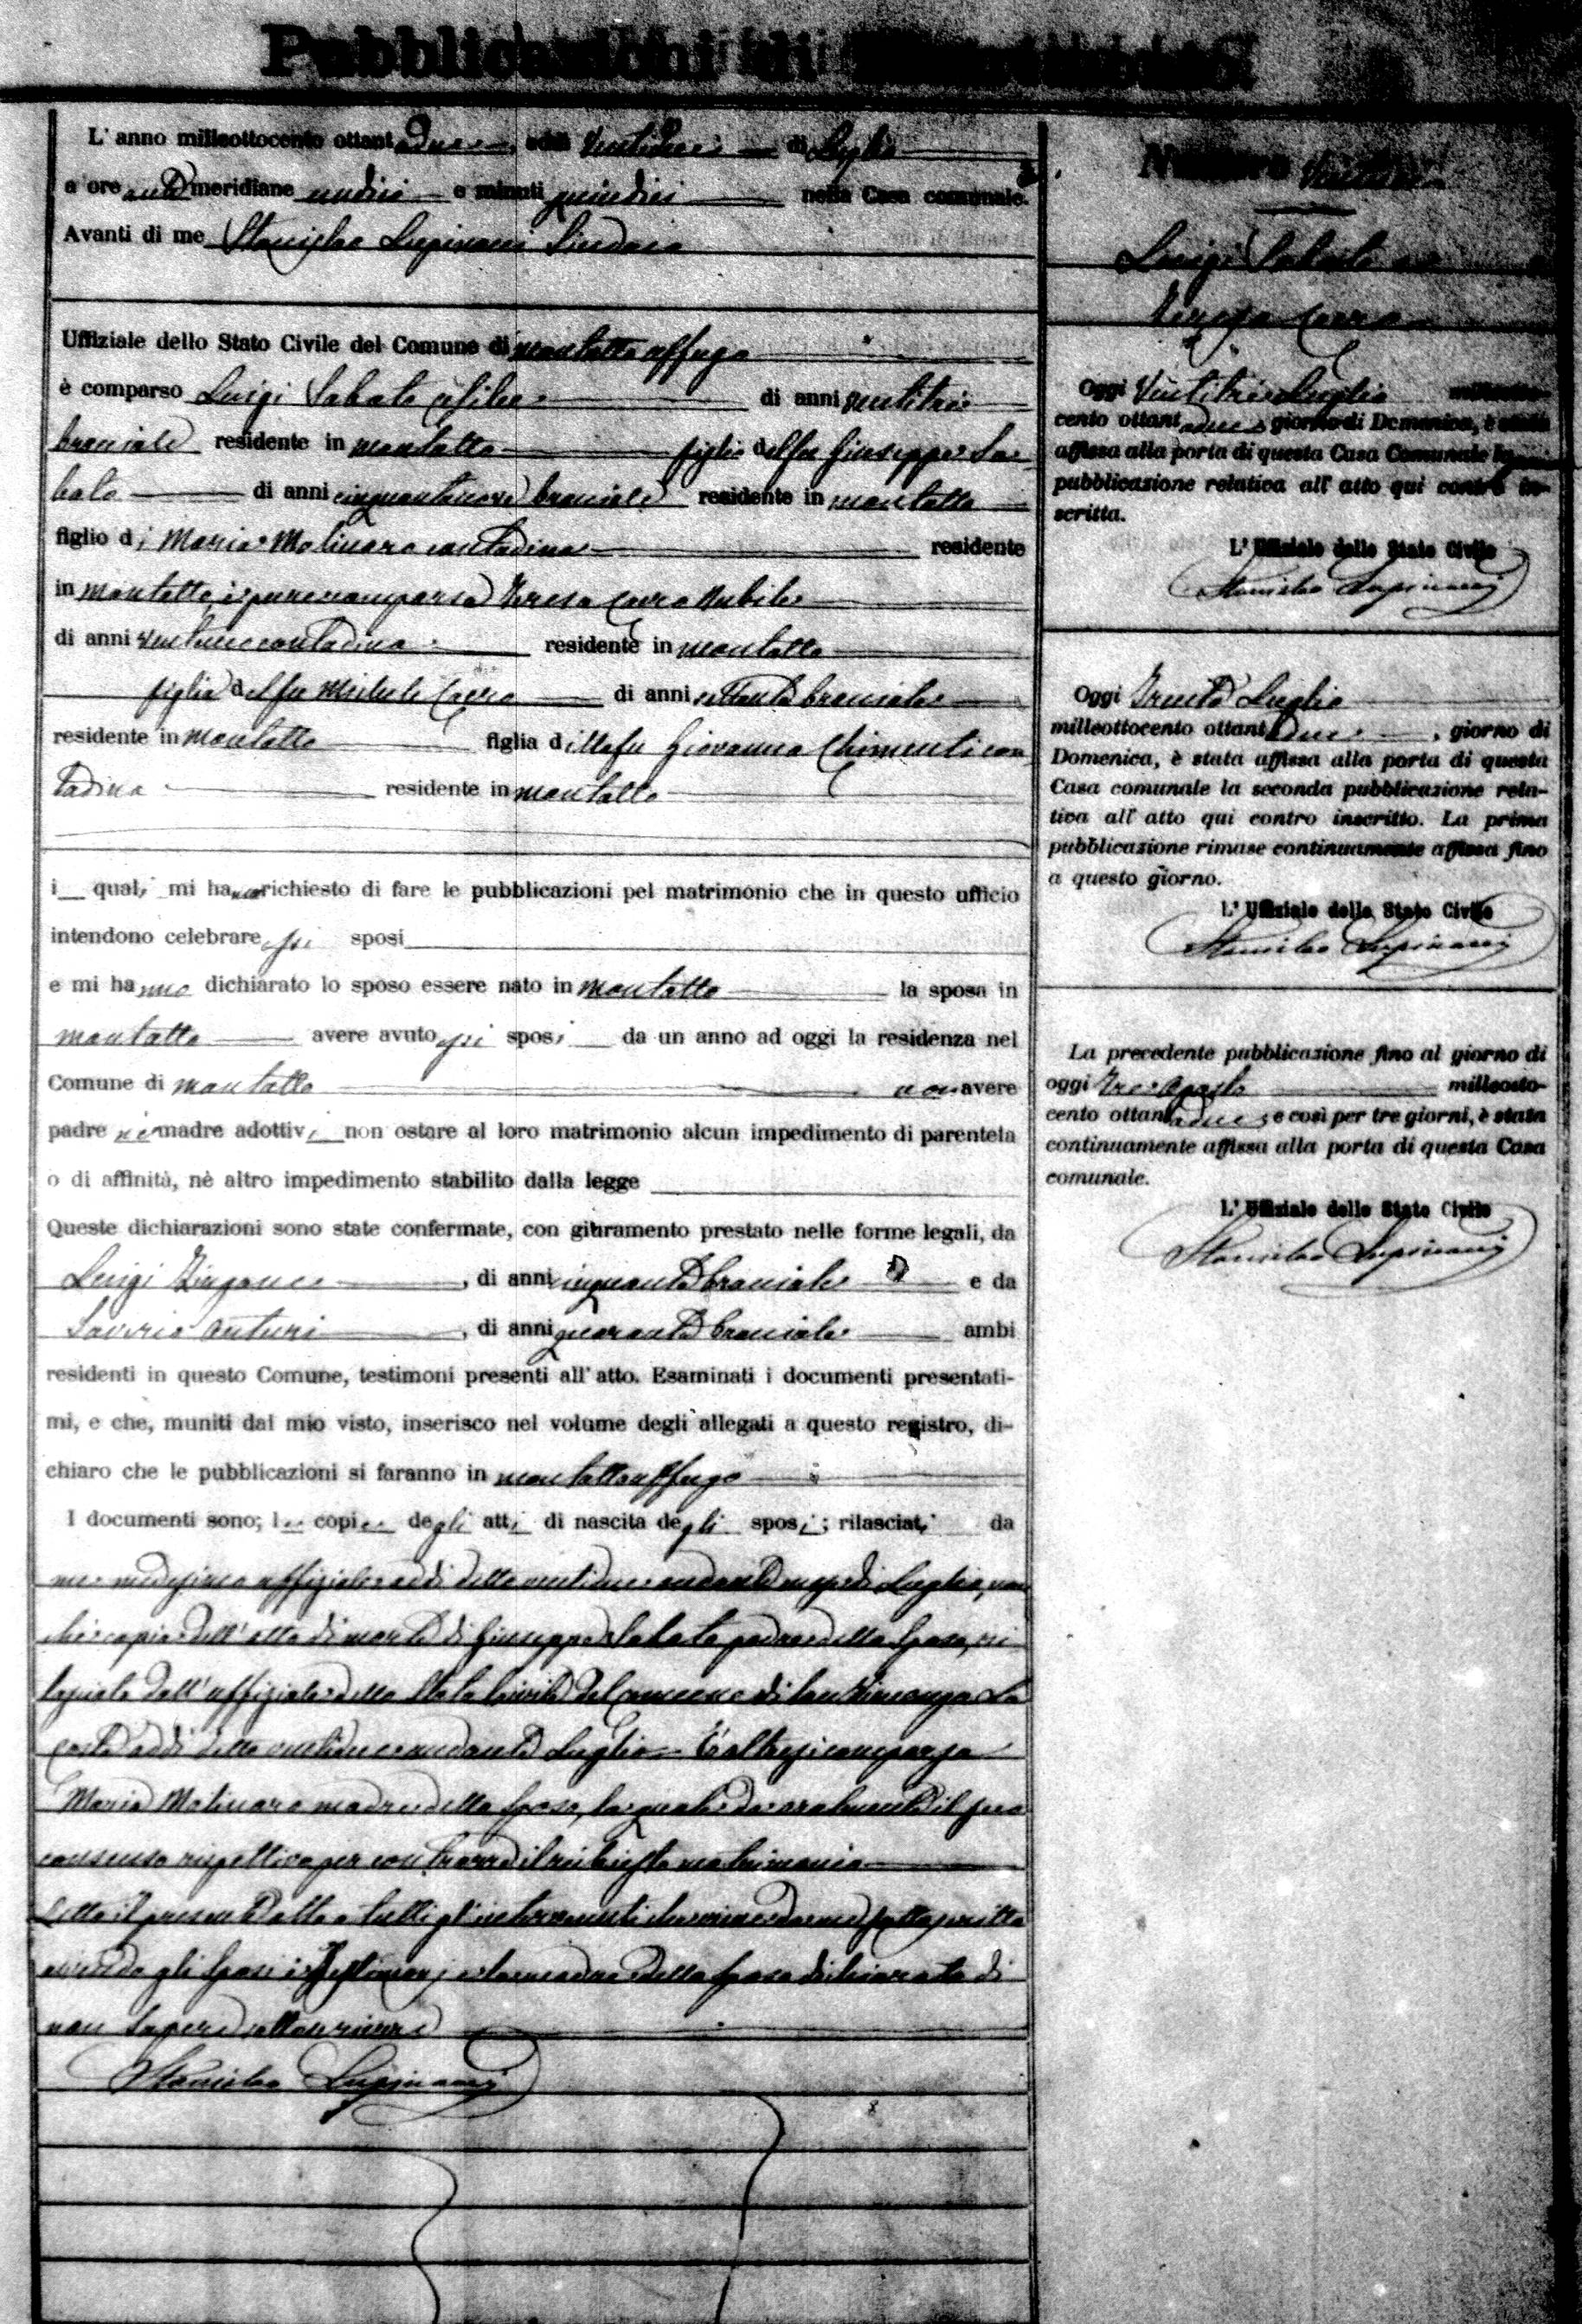 Pubblicazioni di
L' anno milleottocento ottantadue, addì ventidue di Luglio
a ore antimeridiane undici e minuti quindici nella Casa comunale.
Avanti di me Stanislao Lupinacci Sindaco
Uffiziale dello Stato Civile del Comune di Montalto Uffugo
è comparso Luigi Sabato celibe di anni ventitre
bracciale residente in Montalto figlio del fu Giuseppe Sa-
bato di anni cinquantanove bracciale residente in Montalto
figlio di Maria Molinaro contadina residente
in Montalto, è pure comparsa Teresa Nubile
di anni contadina residente in Montalto
figlia del fu Michele di anni settanta bracciale
residente in Montalto figlia della fu Giovanna Chimenti con
tadina residente in Montalto
i quali mi hanno richiesto di fare le pubblicazioni pel matrimonio che in questo ufficio
intendono celebrare essi sposi
e mi hanno dichiarato lo sposo essere nato in Montalto la sposa in
Montalto avere avuto essi sposi da un anno ad oggi la residenza nel
Comune di Montalto non avere
padre nè madre adottivi non ostare al loro matrimonio alcun impedimento di parentela
o di affinità, nè altro impedimento stabilito dalla legge
Queste dichiarazioni sono state confermate, con giuramento prestato nelle forme legali, da
Luigi Zingone, di anni cinquanta bracciale e da
Saverio Anturi, di anni quaranta bracciale ambi
residenti in questo Comune, testimoni presenti all' atto. Esaminati i documenti presentati-
mi, e che, muniti dal mio visto, inserisco nel volume degli allegati a questo registro, di-
chiaro che le pubblicazioni si faranno in Montalto Uffugo
I documenti sono; le copie degli atti di nascita degli sposi; rilasciati da
me medesimo uffiziale addì detto ventidue andante mese di Luglio, non
che copia dell' atto di morte di Giuseppe Sabato padre dello sposo, ri
lasciata dall' uffiziale dello Stato Civile del Comune di San Vincenzo La
Costa addì detto ventidue andante Luglio. È altresì comparsa
Maria Molinaro madre dello sposo, la quale dà oralmente il suo
consenso rispettivo per contrarre il richiesto matrimonio
Letto il presente atto a tutti gl' intervenuti che viene da me sottoscritto
avendo gli sposi i testimoni e la madre dello sposo dichiarato di
non sapere sottoscrivere
Stanislao Lupinacci
Numero
Luigi Sabato
Teresa
Oggi ventitre Luglio milleotto-
cento ottantadue giorno di Domenica, è stata
affissa alla porta di questa Casa Comunale la
pubblicazione relativa all' atto qui contro in-
scritta.
L' Uffiziale dello Stato Civile
Stanislao Lupinacci
Oggi Trenta Luglio
milleottocento ottantadue, giorno di
Domenica, è stata affissa alla porta di questa
Casa comunale la seconda pubblicazione rela-
tiva all' atto qui contro inscritto. La prima
pubblicazione rimase continuamente affissa fino
a questo giorno.
L' Uffiziale dello Stato Civile
Stanislao Lupinacci
La precedente pubblicazione fino al giorno di
oggi tre Agosto milleotto-
cento ottantadue e così per tre giorni, è stata
continuamente affissa alla porta di questa Casa
comunale.
L' Uffiziale dello Stato Civile
Stanislao Lupinacci